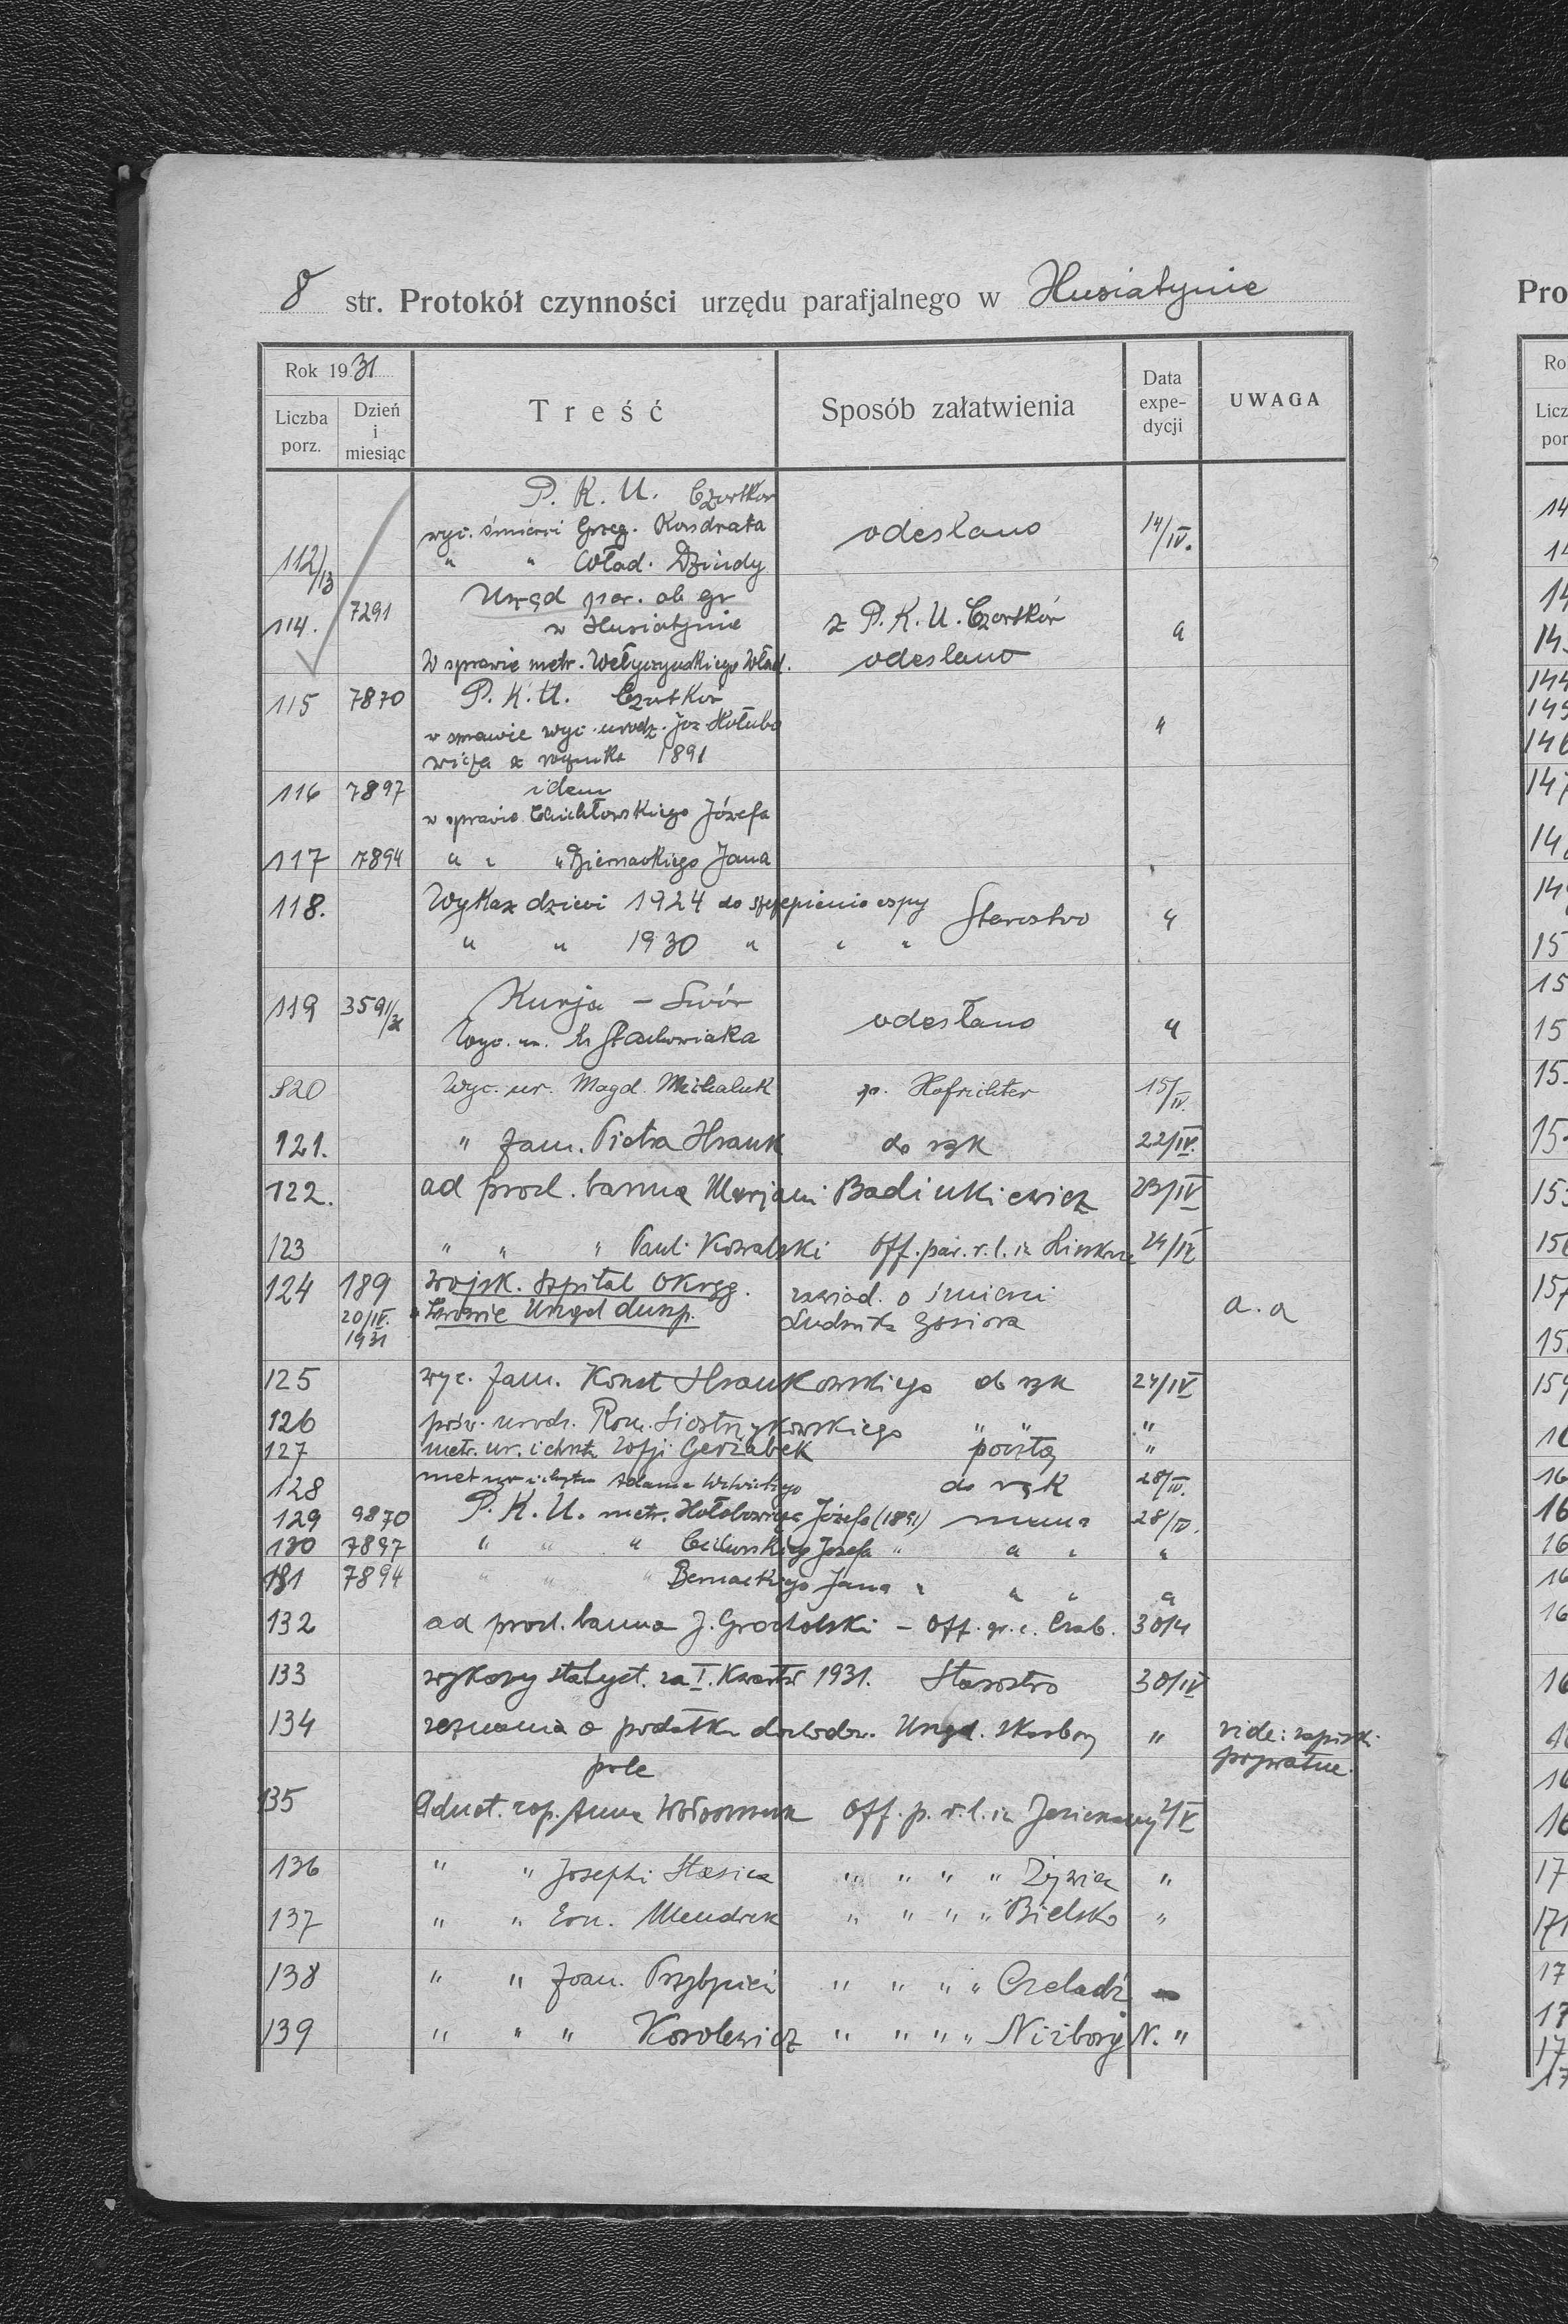 8 str. Protokół czynności urzędu parafjalnego w Husiatynie
Rok 1931
Liczba porz.
Dzień i miesiąc
Treść
Sposób załatwienia
Data expe-dycji
UWAGA
P. K. U. Czortków
wyc. śmierci Grzeg. Kondrata odesłano 14/IV.
112/13 " " Wład. Dziudy
114. 7291 Urząd par. ob gr
w Husiatynie z P. K. U. Czortków "
W sprawie metr. Wełyczyńskiego Wład. odesłano
115 7870 P. K. U. Czortków
w sprawie wyc. urodz. Joz. Hołubo "
wicza z rocznika 1891
116 7897 idem
w sprawie Józefa
117 7894 " " " Biernackiego Jana
118. Wykaz dzieci 1924 do szczepienia ospy Starostwo "
" " 1930 " " "
119 3591/31 Kurja – Lwów
Wyc. Stachowiaka odesłano "
120 Wyc. ur. Magd. Michaluk p. Hofrichter 15/IV.
121. " zam. Piotra Hrauk do rąk 22/IV.
122. ad prod. banna Marjani Badiukiewicz 23/IV
123 " " " Paul. Kowalski Off. par. r. l. in 24/IV
124 189 Wojsk. Szpital Okręg. zawiad. o śmierci
20/IV. 1931 Lwowie Urząd duszp. Ludwika Gąsiora a.a
125 wyc. zam. Konst Hraukowskiego do rąk 24/IV
126 pośw. urodz. Rom. Siostrzykowskiego " " "
127 metr. ur. i chrztu Zofji Gerżabek pocztą "
128 metr ur i chrztu Adama do rąk 28/IV.
129 9870 P. K. U. metr. Hołobowicza Józefa (1891) 28/IV.
130 7897 " " " Józefa " " " "
131 7894 " " " Bernackiego Jana " " " "
132 ad prod. banna J. Grocholski – Off. gr. c. Czab. 30/4
133 wykazy statyst. za I. Kwartał 1931. Starostwo 30/IV
134 zeznania o podatku dochodow. Urząd. skarbowy " vide: zapiski
pole prywatne.
135 Adnot. cop. Anna Off. p. r. l. in 2/V
136 " " Josephi Stasica " " " " Żywiec "
137 " " Ern. Mendrek " " " " Bielsko "
138 " " Joan. Przybycień " " " " Czeladź
139 " " " Korolewicz " " " " Niżborg N. "